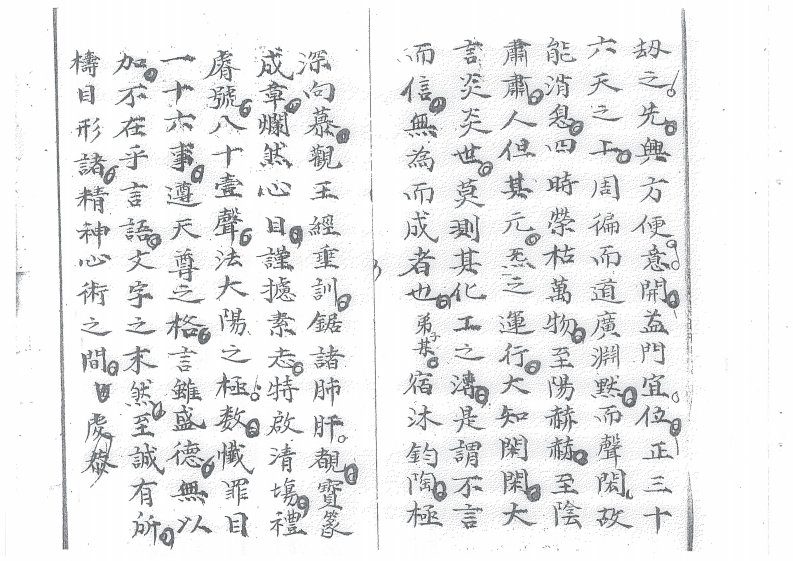 劫之先興方便意開益門宜位正三十
六天之上周徧而道廣淵黙而聲閎故
能消息四時榮枯萬物至陽赫赫至陰
肅肅人但其元炁之運行大知閑閑大
言炎炎世莫測其化工之溥是謂不言
而信無為而成者也弟子某宿沐鈞陶極
深向慕觀玉經垂訓鋸諸肺肝覩寶篆
成章爛然心目謹攄素志特啟清塲禮
䐓號八十壹聲法大陽之極数懺罪目
一十六事遵天尊之格言雖盛德無以
加不在乎言語文字之末然至誠有所
檮目形諸精神心術之間